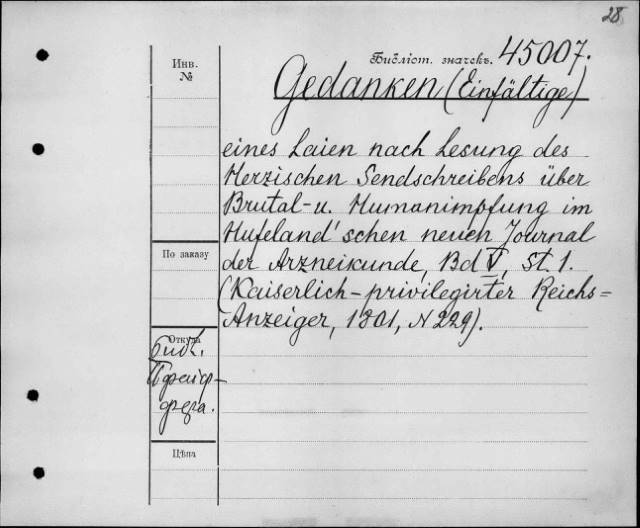 28
Библіот. значекъ. 45007.
Инв.
№
Gedanken (Einfältige)
eines Laien nach Lesung des
Herzischen Sendschreibens über
Brutal- u. Humanimpfung im
Hufeland'schen neuen Journal
По заказу
der Arzneikunde, Bd V, St. 1.
(Kaiserlich-privilegirter Reichs=
Anzeiger, 1801, N 229).
Откуда
Библ.
Цѣна